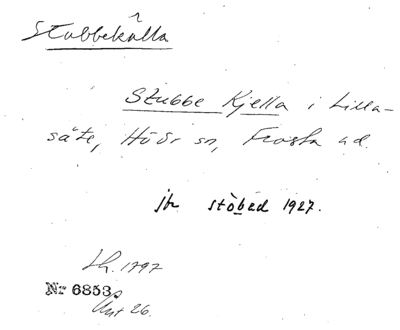 Stubbekälla
Stubbe Kjella i Lilla-
säte, Höör sn, Frosta hd.
jfr stöbed 1927.
Lh. 1797
Nr 6853
Ant 26.